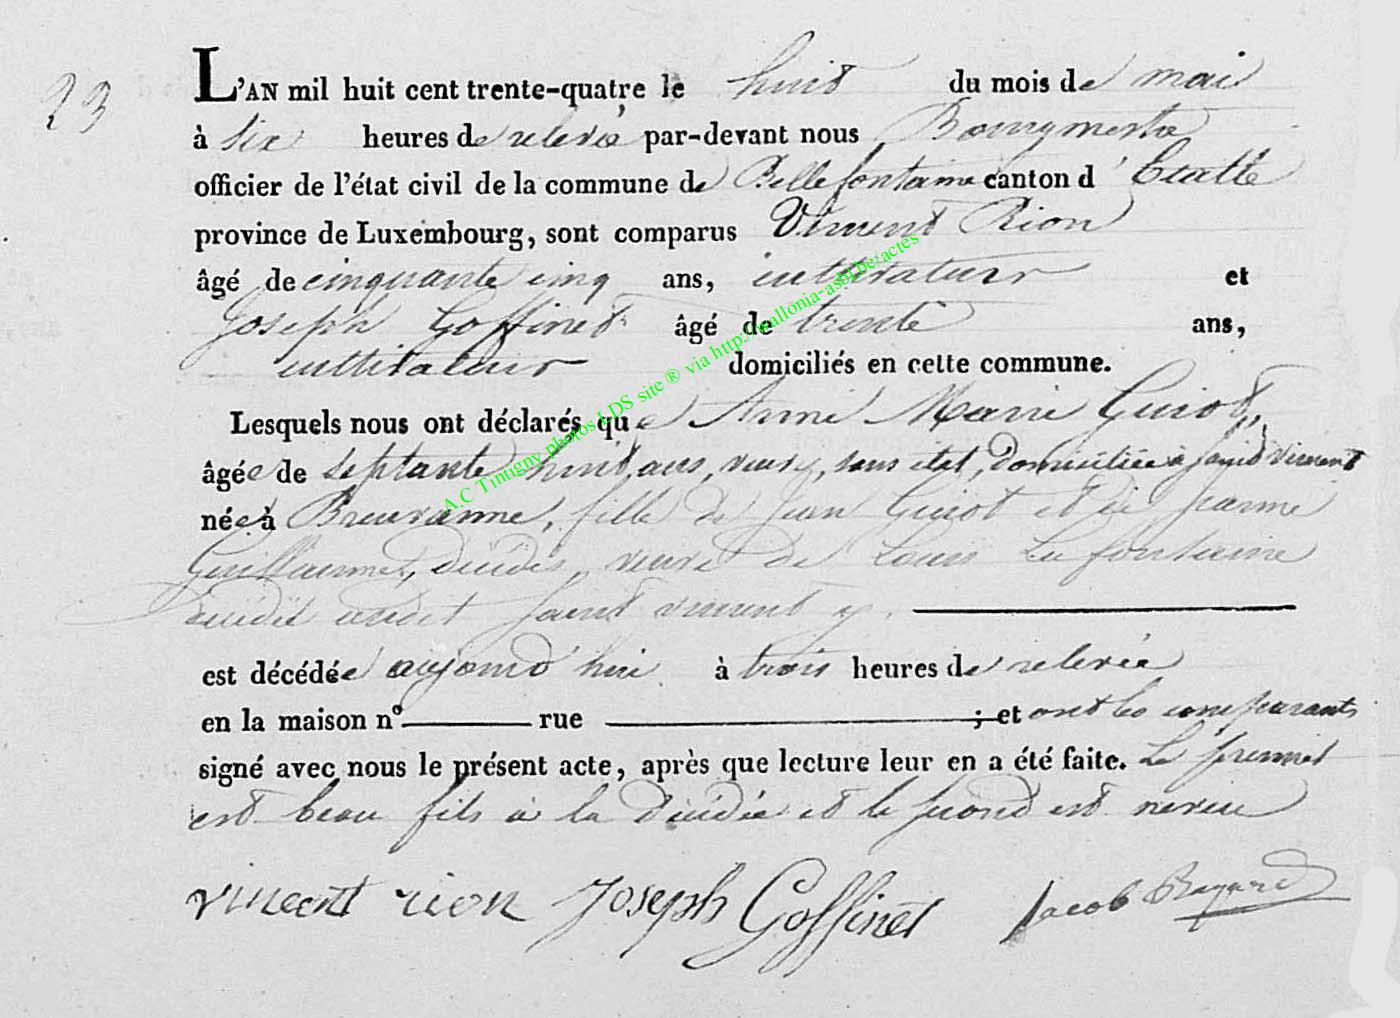 23
L'AN mil huit cent trente-quatre le huit du mois de mai
à six heures de relevée par-devant nous Bourgmestre
officier de l'état civil de la commune de Bellefontaine canton d'Etalle
province de Luxembourg, sont comparus Vincent Rion
âgé de cinquante cinq ans, cultivateur et
Joseph Goffinet âgé de trente ans,
cultivateur domiciliés en cette commune.
Lesquels nous ont déclarés que Anne Marie Guiot,
âgée de septante huit ans, veuve, sans état, domiciliée à Saint Vincent
née à Breuvanne, fille de Jean Guiot et de Jeanne
Guillaume, décédés, veuve de Louis Lafontaine
décédé audit Saint Vincent
est décédée aujourd'hui à trois heures de relevée
en la maison n° rue ; et ont les comparants
signé avec nous le présent acte, après que lecture leur en a été faite. Le premier
est beau fils à la décédée et le second est neveu
vincent rion Joseph Goffinet Jacob
A.C Tintigny photos LDS site ® via http://wallonia-asbl.be/actes